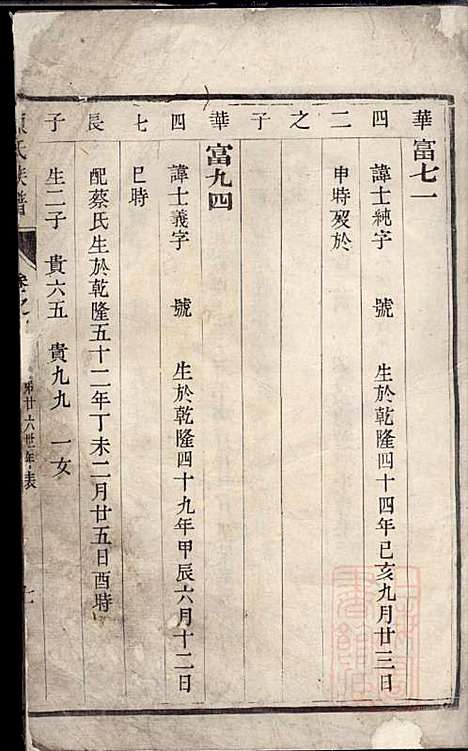 華四二之子
富七一
諱士純字 號 生於乾隆四十四年己亥九月廿三日
申時歿於
華四七長子
富九四
諱士義字 號 生於乾隆四十九年甲辰六月十二日
巳時
配蔡氏生於乾隆五十二年丁未二月廿五日酉時
生二子 貴六五 貴九九 一女
氏族譜 卷之 廿六世年表